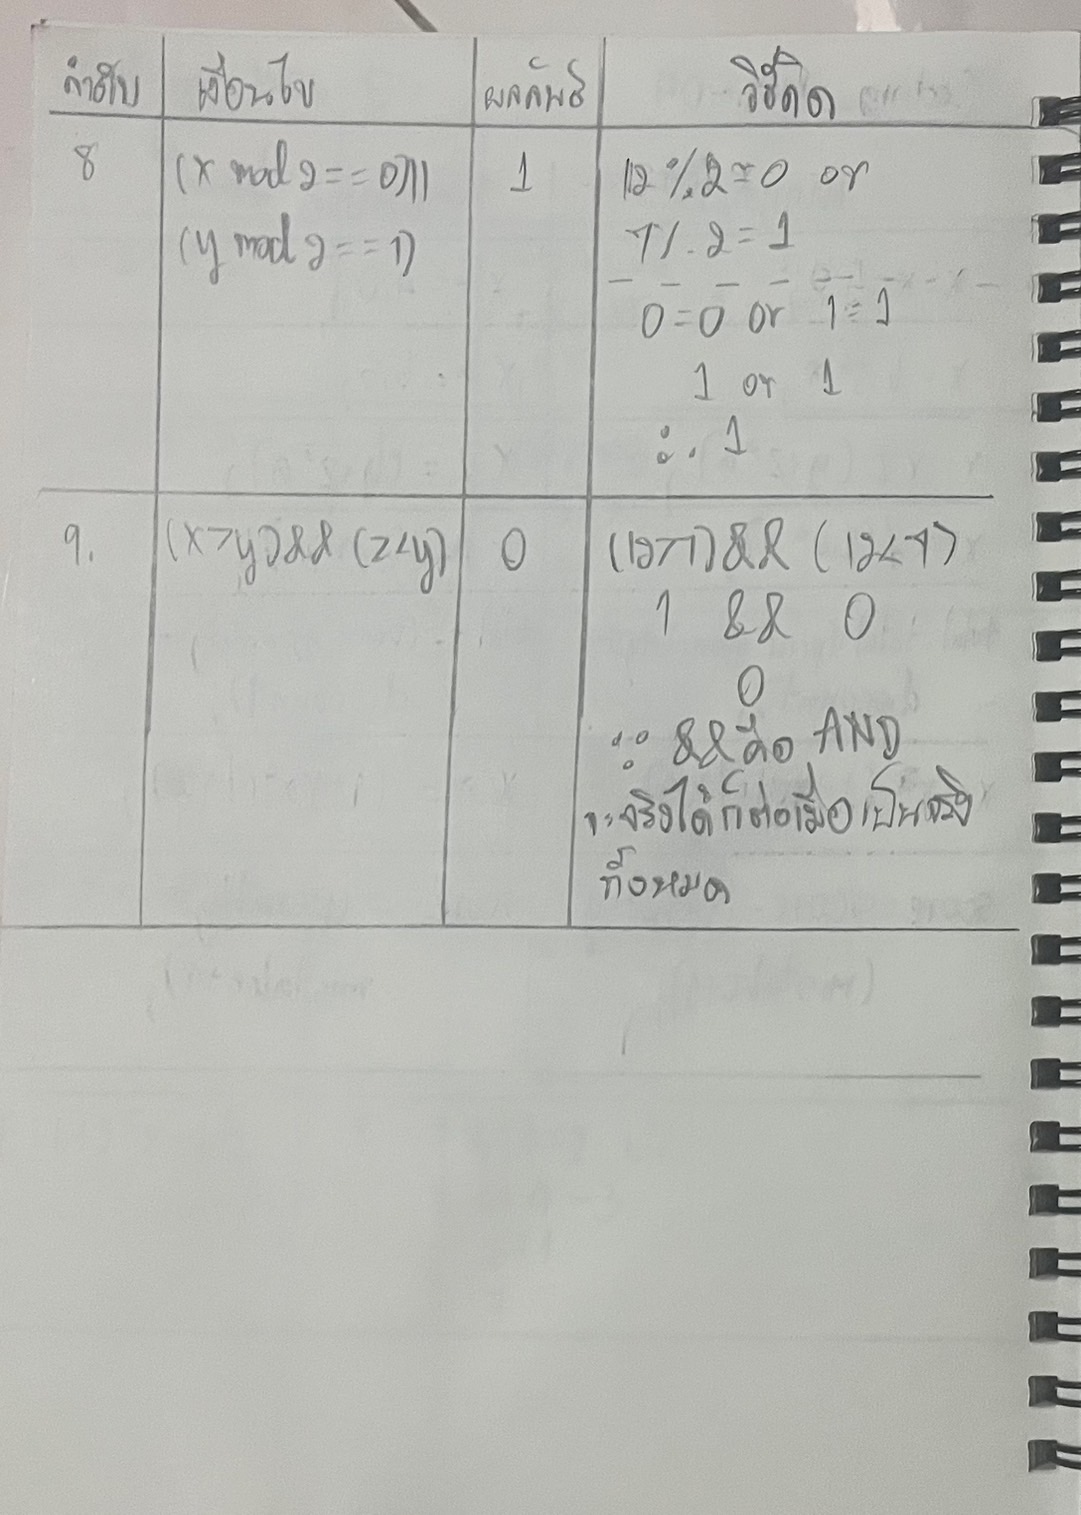 ลำดับ เงื่อนไข ผลลัพธ์ วิธีคิด
8 (x mod 2 == 0) || 1 12 % 2 = 0 or
(y mod 2 == 1) 7 % 2 = 1
0 = 0 or 1 = 1
1 or 1
∴ 1
9. (x > y) && (z < y) 0 (12 > 7) && (12 < 7)
1 && 0
0
∵ && คือ AND
จะจริงได้ก็ต่อเมื่อเป็นจริง
ทั้งหมด